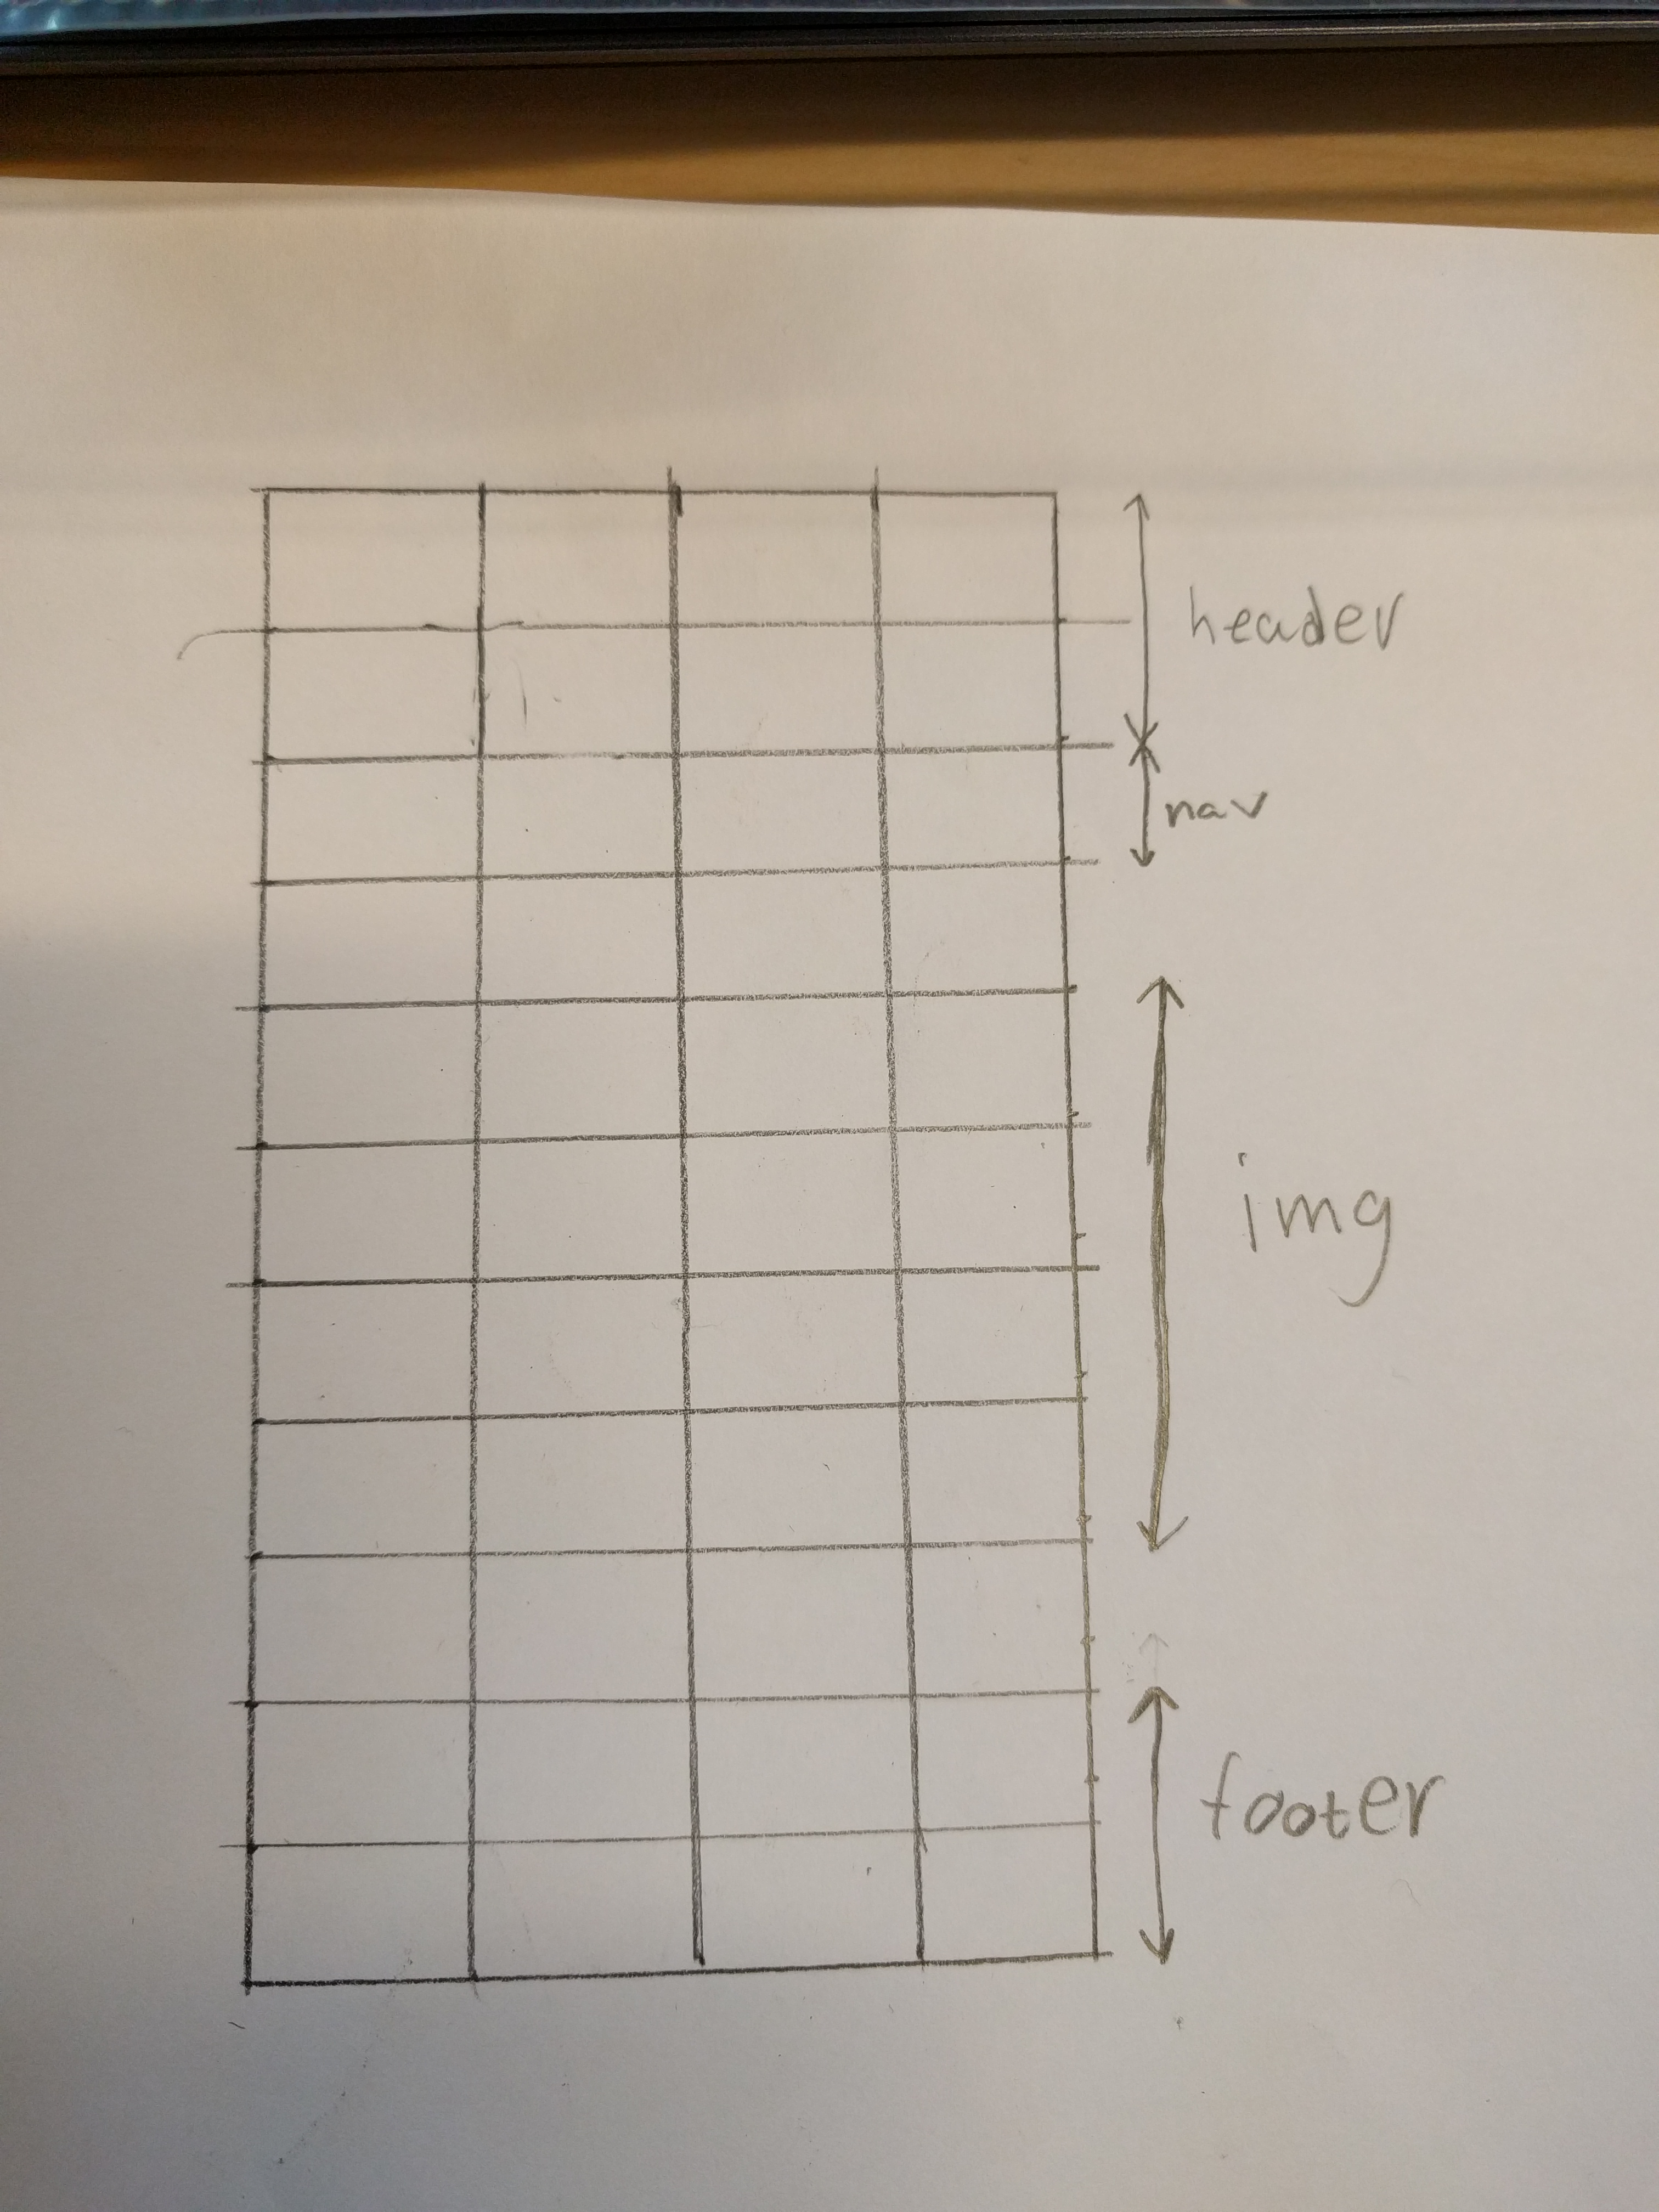 header
nav
img
footer